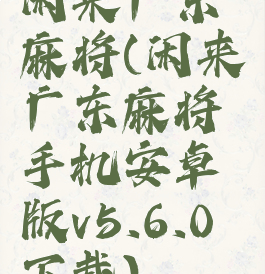 闲来广东
麻将(闲来
广东麻将
手机安卓
版v5.6.0
下载)